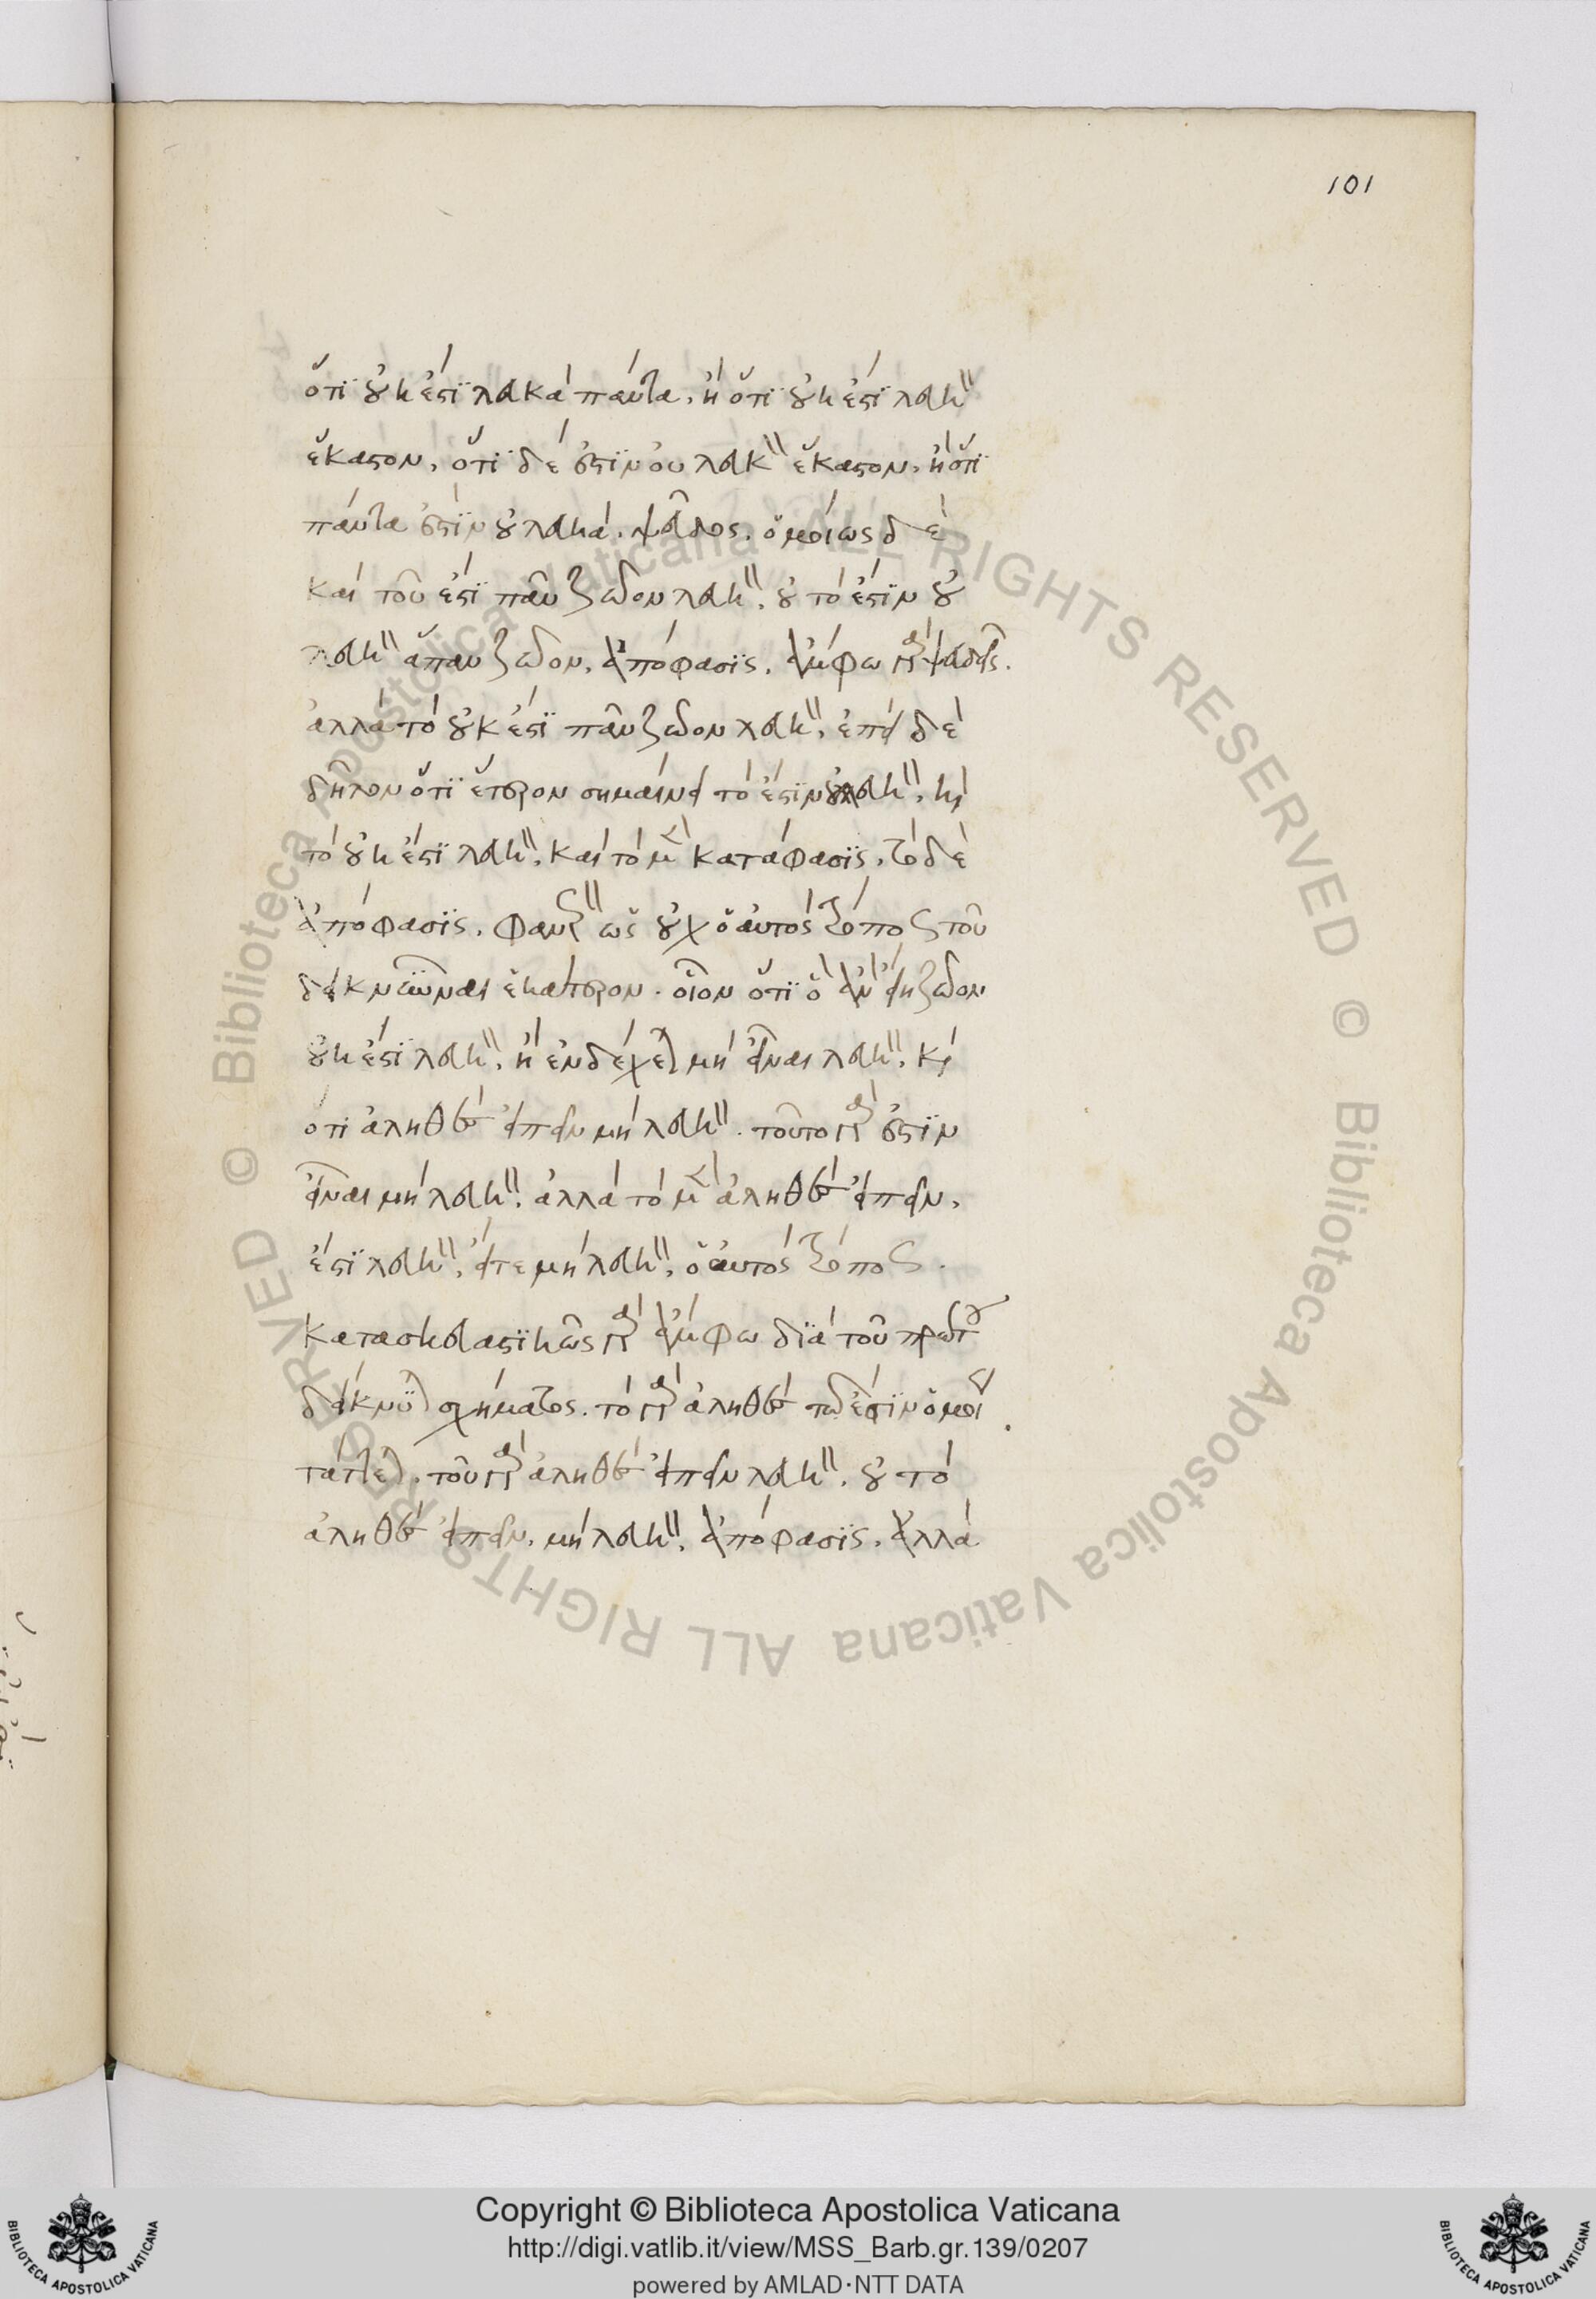 101
ὅτϊ οὐκ ἔστϊ λευκὰ πάντα, ἢ ὅτϊ οὐκ ἔστϊ λευκὸν
ἕκαστον, ὅτϊ δέ ἐστϊν οὐ λευκὸν ἕκαστον, ἢ ὅτϊ
πάντα ἐστὶν οὐ λευκά, ψεῦδος. ὁμοίως δὲ
καὶ τοῦ ἔστϊ πᾶν ζῶον λευκὸν, οὐ τὸ ἔστϊν οὐ
λευκὸν ἅπαν ζῶον, ἀπόφασϊς, ἄμφω γὰρ ψευδεῖς.
ἀλλὰ τὸ οὐκ ἔστϊ πᾶν ζῶον λευκὸν, ἐπεὶ δὲ
δῆλον ὅτϊ ἕτερον σημαίνει τὸ ἔστϊν οὐ λευκὸν, καὶ
τὸ οὐκ ἔστϊ λευκὸν, καὶ τὸ μὲν κατάφασϊς, τὸ δὲ
ἀπόφασϊς, φανερὸν ὡς οὐχ ὁ αὐτὸς τρόπος τοῦ
δεικνύναι ἑκάτερον. οἷον ὅτϊ ὃ ἂν εἴη ζῶον
οὐκ ἔστϊ λευκὸν, ἢ ἐνδέχεται μὴ εἶναι λευκὸν, καὶ
ὅτι ἀληθὲς εἰπεῖν μὴ λευκὸν. τοῦτο γὰρ ἐστϊν
εἶναι μὴ λευκὸν, ἀλλὰ τὸ μὲν ἀληθὲς εἰπεῖν,
ἔστϊ λευκὸν, εἴτε μὴ λευκὸν, ὁ αὐτὸς τρόπος.
κατασκευαστϊκῶς γὰρ ἄμφω δϊὰ τοῦ πρώτου
δείκνϋται σχήματος. τὸ γὰρ ἀληθὲς τῶ ἔστϊν ὁμοίως
τάττεται. τοῦ γὰρ ἀληθὲς εἰπεῖν λευκὸν, οὐ τὸ
ἀληθὲς εἰπεῖν, μὴ λευκὸν, ἀπόφασϊς, ἀλλὰ
Copyright © Biblioteca Apostolica Vaticana
http://digi.vatlib.it/view/MSS_Barb.gr.139/0207
powered by AMLAD·NTT DATA